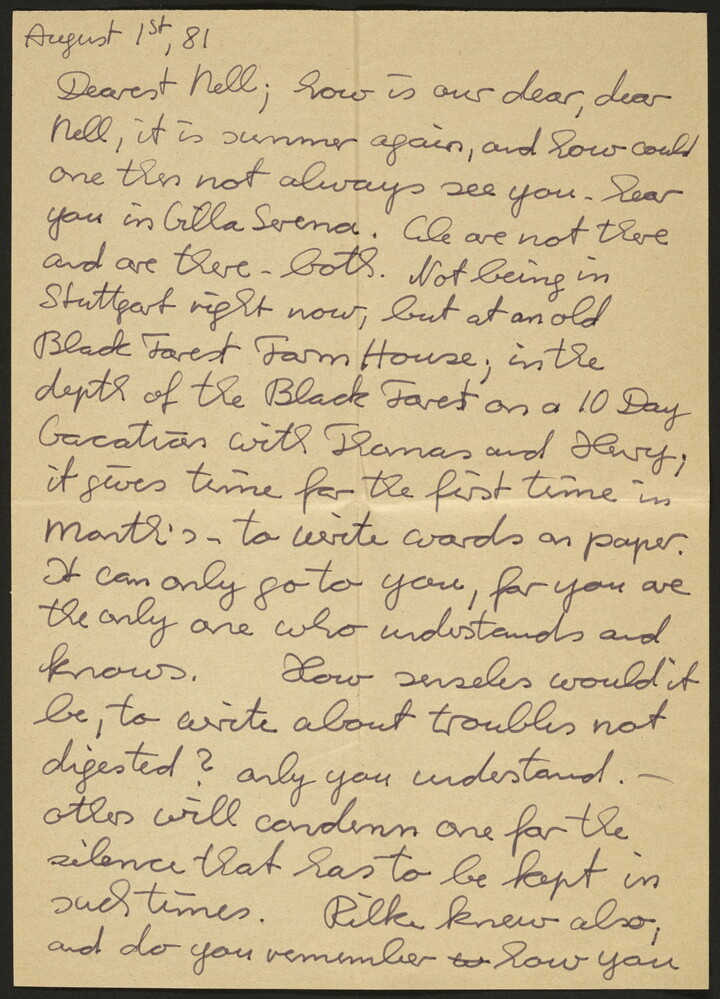 August 1st, 81
Dearest Nell; how is our dear, dear
Nell, it is summer again, and how could
one then not always see you - hear
you in Villa Serena. We are not there
and are there - both. Not being in
Stuttgart right now, but at an old
Black Forest Farm House; in the
depth of the Black Forest on a 10 Day
Vacation with Thomas and
it gives time for the first time in
Month's - to write words on paper.
It can only go to you, for you are
the only one who understands and
knows. How senseles would it
be, to write about troubles not
digested? only you understand. —
others will condemn one for the
silence that has to be kept in
such times. Rilke knew also;
and do you remember how you